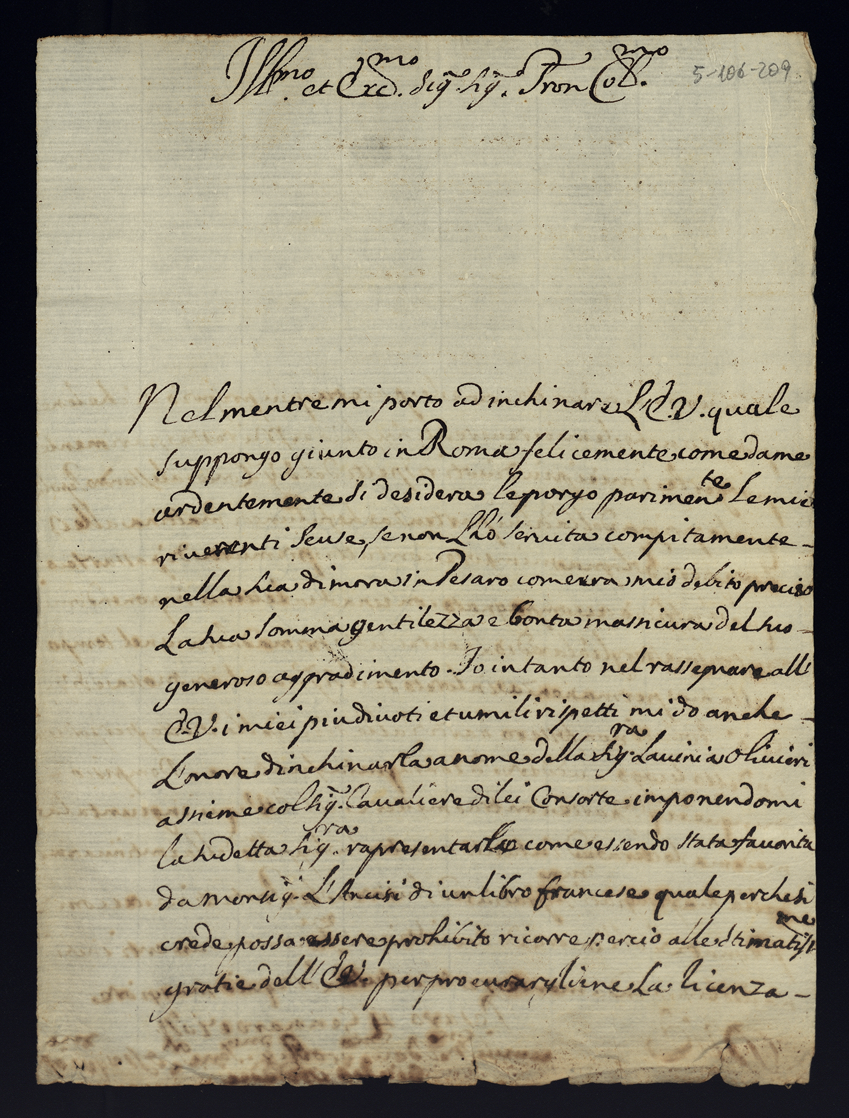 Ill.mo et Ecc.mo Sig.r Sig.r Pron Col.mo
5-106-209
Nel mentre mi porto ad inchinare L'E.V. quale
suppongo giunto in Roma felicemente come da me
ardentemente si desidera le porgo parimen.te Le mie
riverenti scuse, se non L'hò servita compitamente
nella sua dimora in Pesaro come era mio debito preciso
La sua somma gentilezza e bontà m'assicura del suo
generoso aggradimento. Io intanto nel rassegnare all'
E.V. i miei più divoti et umili rispetti mi dò anche
L'onore d'inchinarla a nome della Sig.ra Lavinia Olivieri
assieme col Sig.r Cavaliere di lei Consorte imponendomi
la sudetta Sig.ra rapresentarle come essendo stata favorita
da Monsig.r L'Ancisi di un libro francese quale perche si
crede possa essere prohibito ricorre perciò alle stimatiss.me
gratie dell'E.V. per procurargliene La licenza